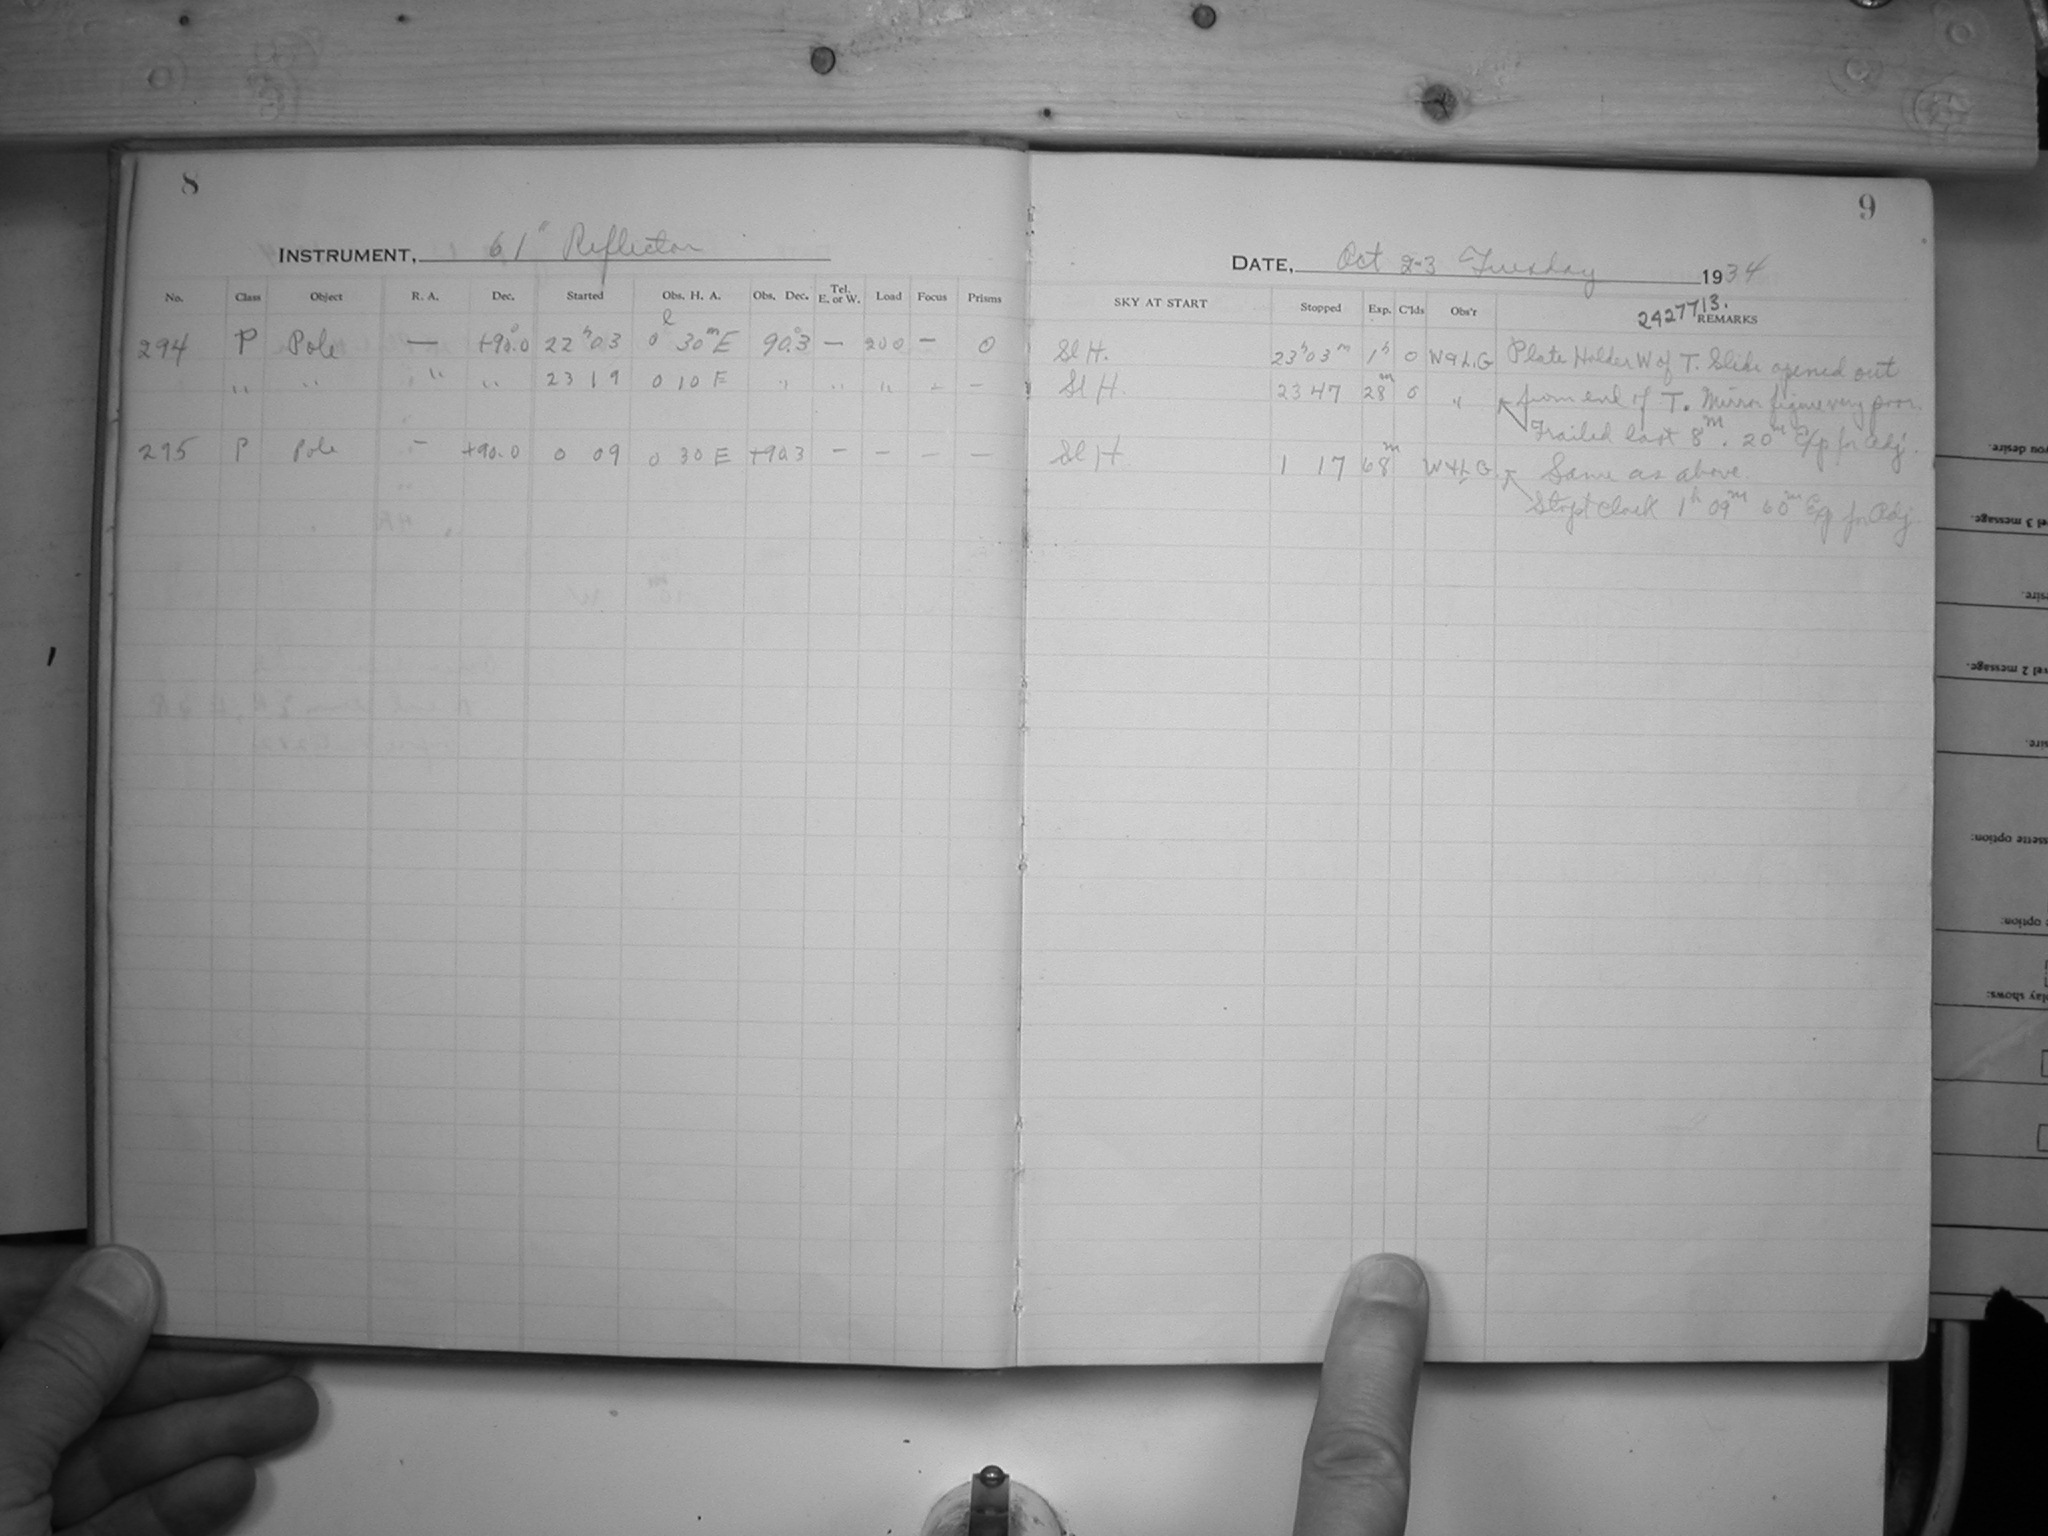 8
INSTRUMENT, 61" Reflector
No. Class Object R. A. Dec. Started Obs. H. A. Obs. Dec. Tel. E. or W. Load Focus Prisms
294 P Pole — +90.0 22h 03 0 30m E 90.3 — 200 — 0
" " " " 23 19 0 10 E " " " - —
295 P Pole — +90.0 0 09 0 30 E +90.3 — — — —
9
DATE, Oct 2-3 Tuesday 1934
2427713.
SKY AT START Stopped Exp. C'lds Obs'r REMARKS
Sl H. 23h 03m 1h 0 W & L.G Plate Holder W of T. Slide opened out
Sl H. 23 47 28m 0 " from end of T. Mirror figure very poor.
Trailed last 8m. 20m Exp for adj.
Sl H 1 17 68m W & L.G. Same as above
Stopt clock 1h 09m 60m Exp for Adj
you desire.
vel 3 message.
sire.
vel 2 message.
sire.
ssette option:
option:
play shows: